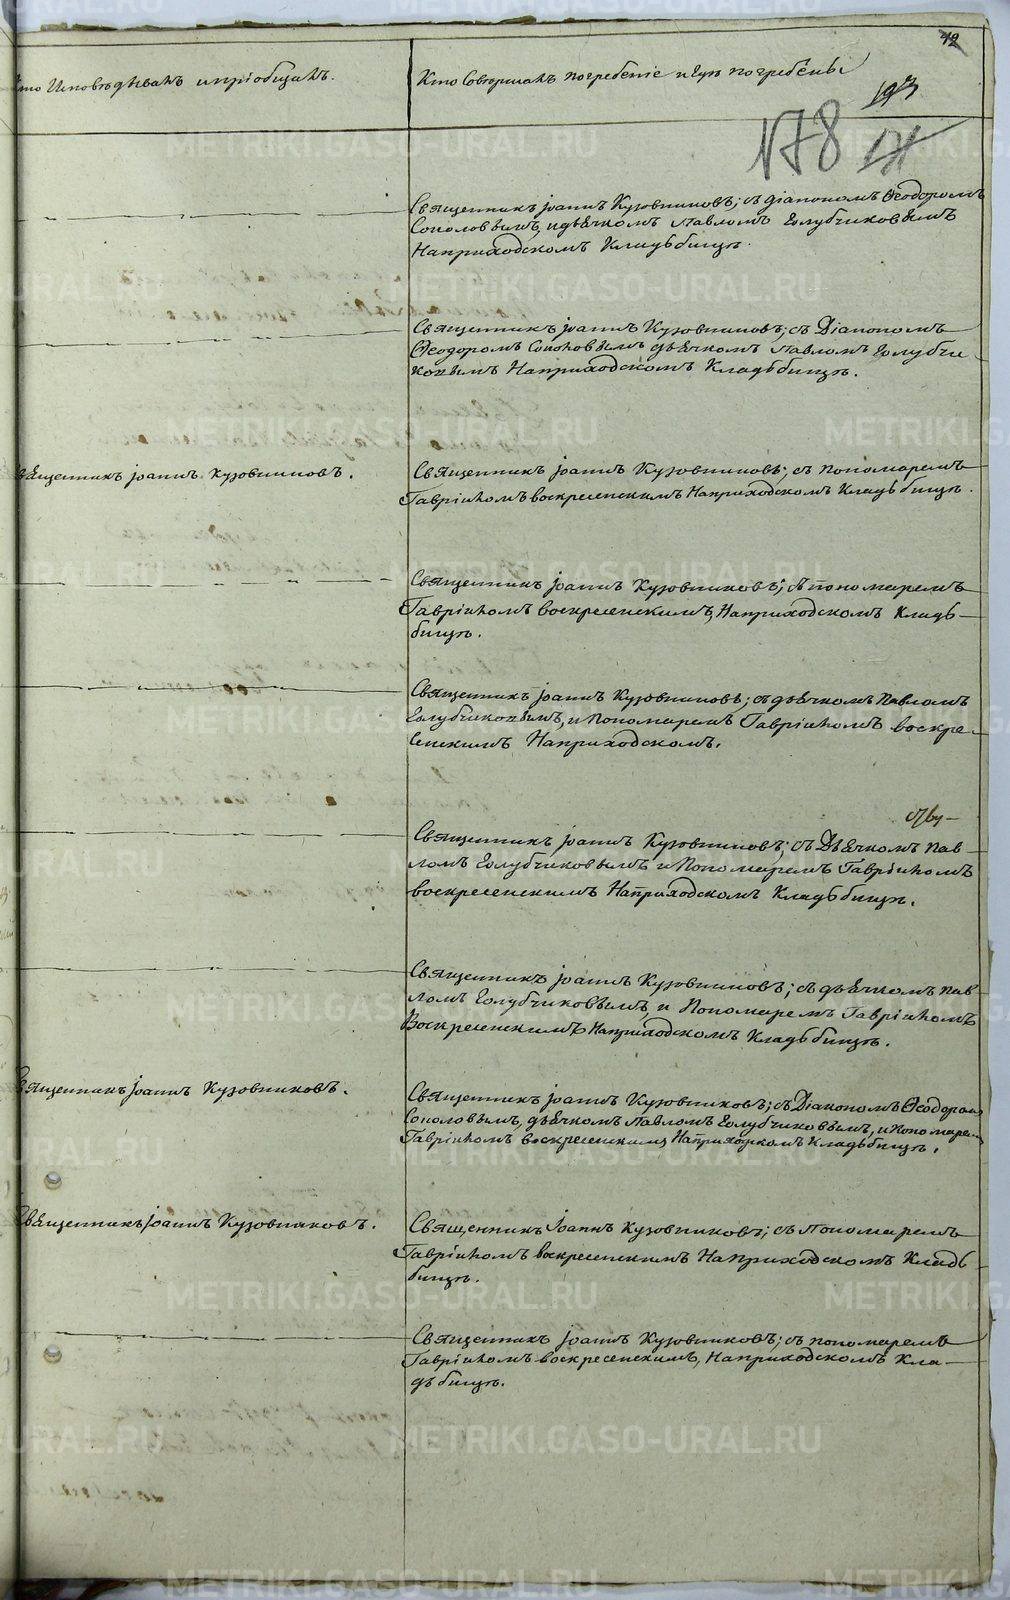 42
Кто Исповѣдывалъ ипріобщалъ.
Кто Совершалъ погребеніе и гдѣ погребены
193
178
Священникъ Іоаннъ Кузовниковъ; съ діакономъ Ѳеодоромъ
Соколовымъ, идьячкомъ Павломъ Голубчиковымъ
Наприходскомъ Кладьбищѣ.
Священникъ Іоаннъ Кузовниковъ; съ Діакономъ
Ѳеодоромъ Соколовымъ дьячкомъ Павломъ Голубчи-
ковымъ Наприходскомъ Кладьбищѣ.
Священникъ Іоаннъ Кузовниковъ.
Священникъ Іоаннъ Кузовниковъ; съ пономаремъ
Гавріиломъ воскресенскимъ Наприходскомъ Кладьбищѣ.
Священникъ Іоаннъ Кузовниковъ; съ пономаремъ
Гавріиломъ воскресенскимъ, Наприходскомъ Кладь-
бищѣ.
Священникъ Іоаннъ Кузовниковъ; съ дьячкомъ Павломъ
Голубчиковымъ, и Пономаремъ Гавріиломъ воскре-
сенскимъ Наприходскомъ.
Священникъ Іоаннъ Кузовниковъ; съ Дьячкомъ Пав-
ломъ Голубчиковымъ и Пономаремъ Гавріиломъ
воскресенскимъ Наприходскомъ Кладьбищѣ.
Священникъ Іоаннъ Кузовниковъ; съ дьячкомъ Пав-
ломъ Голубчиковымъ, и Пономаремъ Гавріиломъ
Воскресенскимъ Наприходскомъ Кладьбищѣ.
Священникъ Іоаннъ Кузовниковъ.
Священникъ Іоаннъ Кузовниковъ; съ Діакономъ Ѳеодоромъ
Соколовымъ, дьячкомъ Павломъ Голубчиковымъ, и Пономаремъ
Гавріиломъ воскресенскимъ Наприходскомъ Кладьбищѣ.
Священникъ Іоаннъ Кузовниковъ.
Священникъ Іоаннъ Кузовниковъ; съ Пономаремъ
Гавріиломъ Воскресенскимъ Наприходскомъ Кладь
бищѣ.
Священникъ Іоаннъ Кузовниковъ; съ пономаремъ
Гавріиломъ воскресенскимъ, Наприходскомъ Кла-
дьбищѣ.